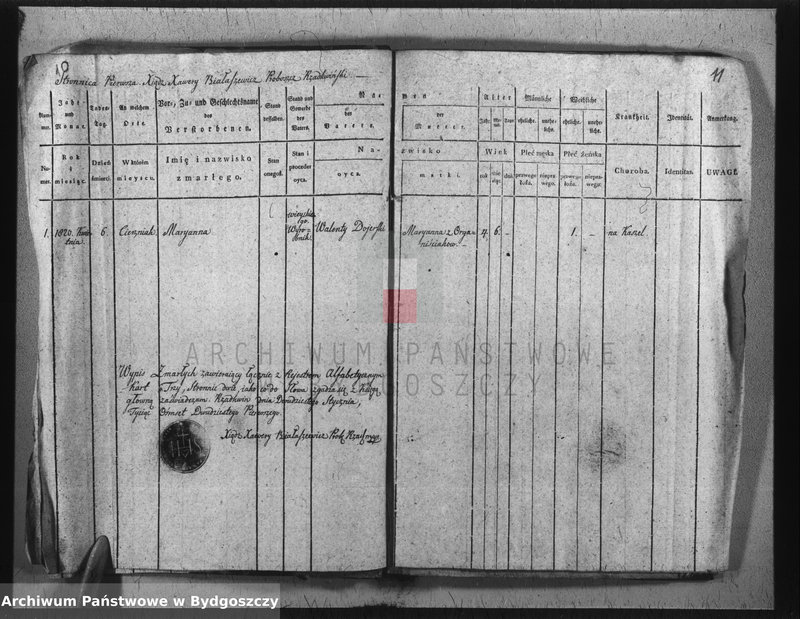 10
Stronnica Pierwsza Xiądz Xawery Białaszewicz Proboszcz Rządkwiński
11
Num-mer.
Jahr und Monat.
Todes-Tag.
An welchem Orte.
Vor-, Zu- und Geschlechtsname des Verstorbenen.
Stand desselben.
Stand und Gewerbe des Vaters.
Na-men
der Vaters.
der Mutter.
Alter
Jahr. Mo-nat. Tage
Männliche
eheliche. unehe-liche.
Weibliche
eheliche. unehe-liche.
Krankheit.
Identität.
Anmerkung.
Nu-mer.
Rok i miesiąc.
Dzień śmierci.
W którém mieyscu.
Imię i nazwisko zmarłego.
Stan onegoż.
Stan i proceder oyca.
Nazwisko
oyca.
matki.
Wiek
rok mie-siąc. dni.
Płeć męska
prawego łoża. niepra-wego.
Płeć żeńska
prawego łoża. niepra-wego.
Choroba.
Identitas.
UWAGI.
1. 1820. Kwie-tnia. 6. Cierzniak. Maryanna Wyro-bnik. Walenty Maryanna z 4. 6. - 1. - na Kaszel
Wypis Zmarłych zawierający łącznie z Rejestrem Alfabetycznym
Kart Trzy, Stronnic dwie, iako co do Słowa zgadza się z Księgą
główną zaświadczam. Rządkwin dnia Dwudziestego Stycznia,
Tysiąc Ośmset Dwudziestego Pierwszego.
Xiądz Xawery Białaszewicz Prob.
ARCHIWUM PAŃSTWOWE
BYDGOSZCZY
Archiwum Państwowe w Bydgoszczy